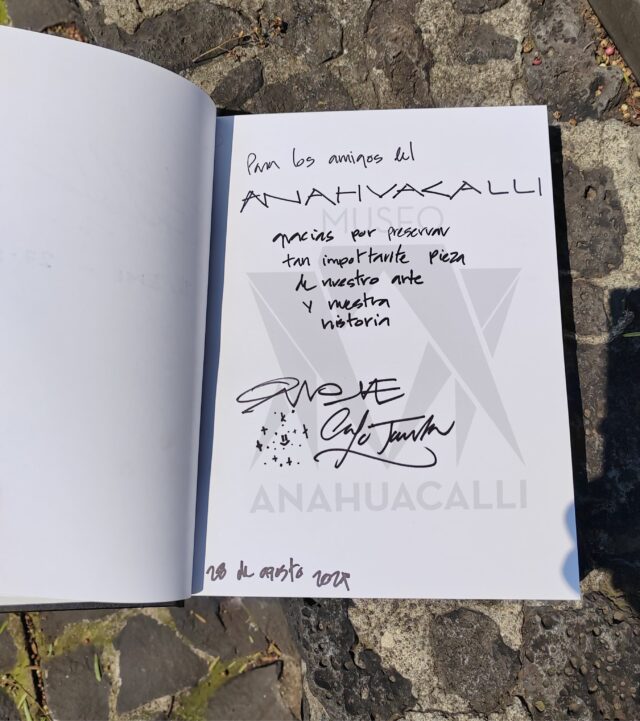 Para los amigos del
ANAHUACALLI
MUSEO
gracias por preservar
tan importante pieza
de nuestro arte
y nuestra
historia
Café Tacvba
ANAHUACALLI
28 de agosto 2025